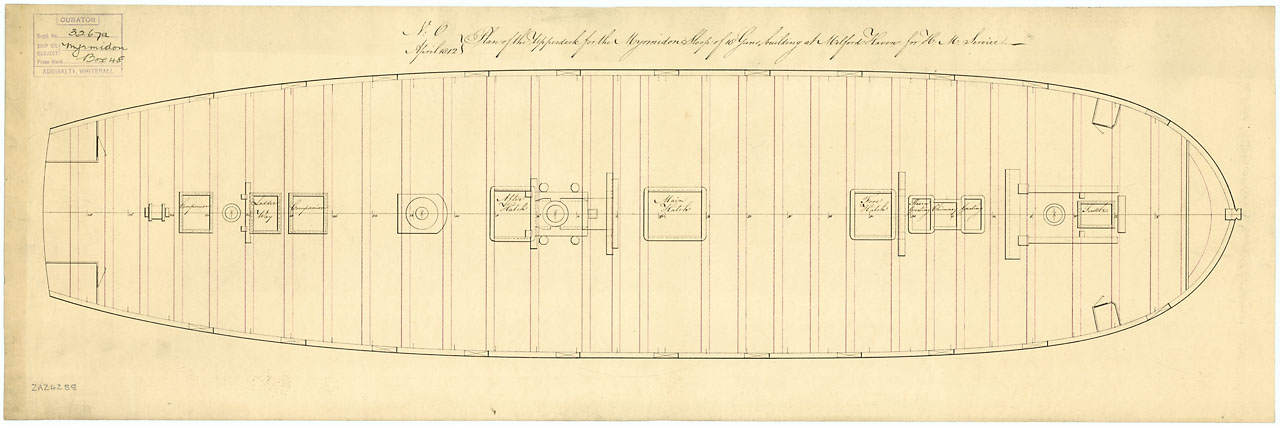 CURATOR
Regd. No. 3267a
SHIP OR SUBJECT Myrmidon
Box 48
ADMIRALTY, WHITEHALL
April 1812
Plan of the Upperdeck for the Myrmidon Sloop of 18 Guns, building at Milford Haven for H. M. Service
Companion
Ladder Way
Companion
After Hatch
Main Hatch
Fore Hatch
Chimney
Scuttle
ZAZ4288